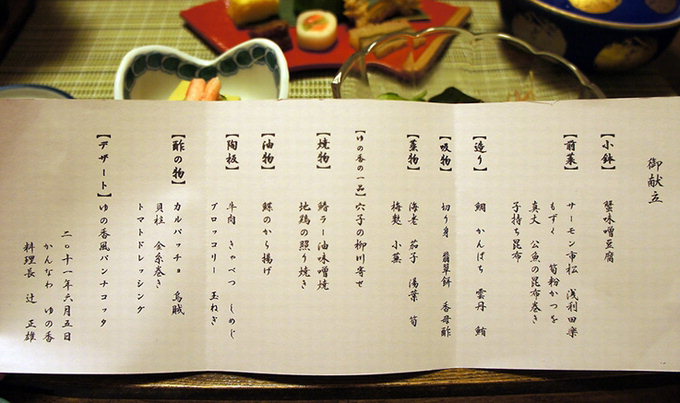 御献立
【小鉢】 蟹味噌豆腐
【前菜】 サーモン市松 浅利田楽
もずく 筍粉かつを
真丈 公魚の昆布巻き
子持ち昆布
【造り】 鯛 かんぱち 雲丹 鮪
【吸物】 切り身 蓬草餅 香母酢
【蒸物】 海老 茄子 湯葉 筍
梅麩 小菓
【ゆの香の一品】 穴子の柳川寄せ
【焼物】 鰆ラー油味噌焼
地鶏の照り焼き
【油物】 鰈のから揚げ
【陶板】 牛肉 きゃべつ しめじ
ブロッコリー 玉ねぎ
【酢の物】 カルパッチョ 烏賊
貝柱 金糸巻き
トマトドレッシング
【デザート】 ゆの香風パンナコッタ
二〇十一年六月五日
かんなわ ゆの香
料理長 辻 正雄